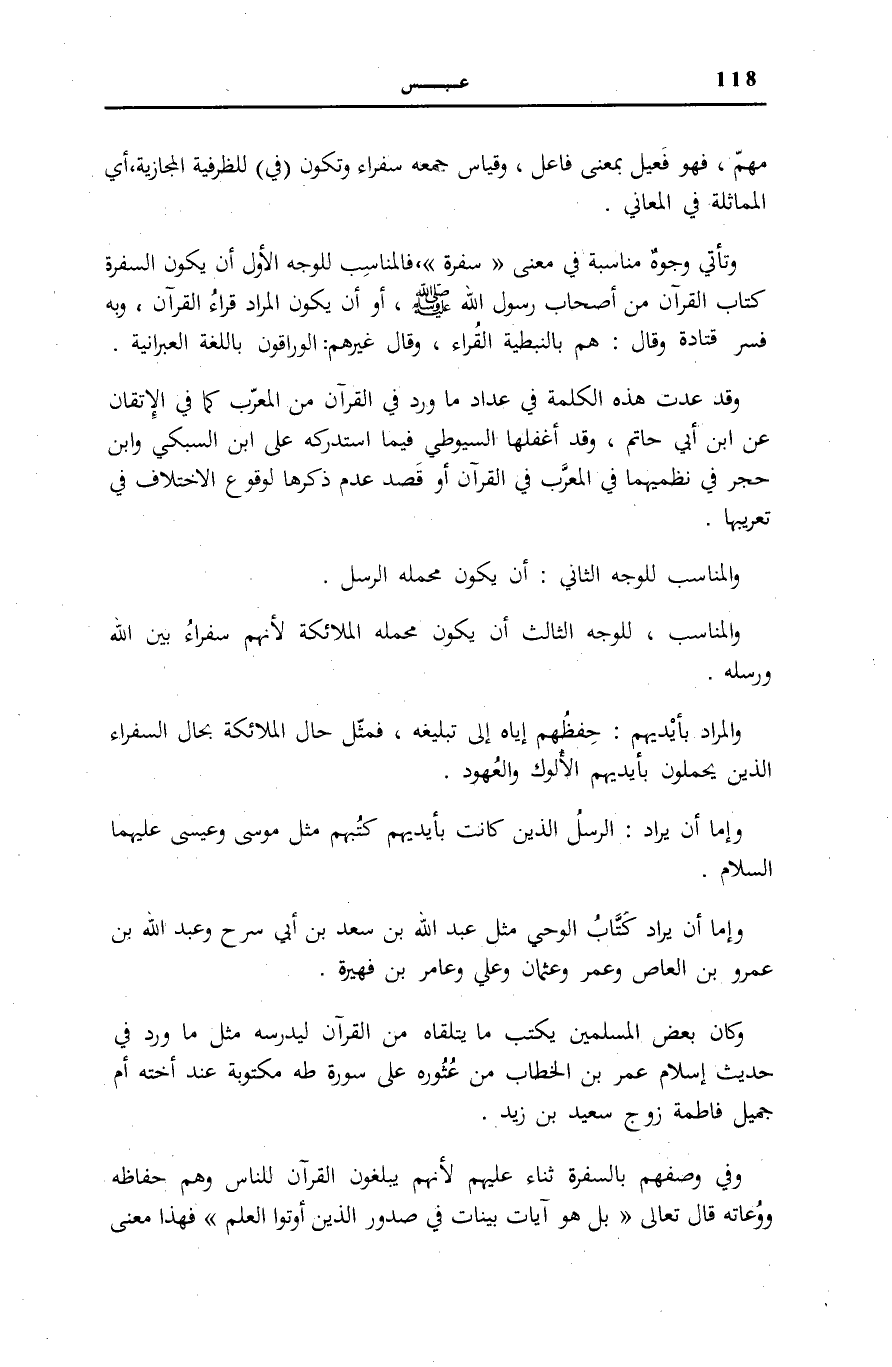 118
عبـــس
مهمّ ، فهو فَعيل بمعنى فاعل ، وقياس جمعه سفراء وتكون (في) للظرفية المجازية،أي
المماثلة في المعاني .
وتأتي وجوهٌ مناسبة في معنى « سفرة »،فالمناسِب للوجه الأول أن يكون السفرة
كتاب القرآن من أصحاب رسول الله ﷺ ، أو أن يكون المراد قراءُ القرآن ، وبه
فسر قتادة وقال : هم بالنبطية القُراء ، وقال غيرهم: الوراقون باللغة العبرانية .
وقد عدت هذه الكلمة في عداد ما ورد في القرآن من المعرّب كما في الإتقان
عن ابن أبي حاتم ، وقد أغفلها السيوطي فيما استدركه على ابن السبكي وابن
حجر في نظميهما في المعرَّب في القرآن أو قَصد عدم ذكرها لوقوع الاختلاف في
تعريبها .
والمناسب للوجه الثاني : أن يكون محمله الرسل .
والمناسب ، للوجه الثالث أن يكون محمله الملائكة لأنهم سفراءُ بين الله
ورسله .
والمراد بأيْديهم : حِفظُهم إياه إلى تبليغه ، فمثّل حال الملائكة بحال السفراء
الذين يحملون بأيديهم الألوك والعُهود .
وإما أن يراد : الرسلُ الذين كانت بأيديهم كتُبهم مثل موسى وعيسى عليهما
السلام .
وإما أن يراد كَتَّابُ الوحي مثل عبد الله بن سعد بن أبي سرح وعبد الله بن
عمرو بن العاص وعمر وعثمان وعلي وعامر بن فهيرة .
وكان بعض المسلمين يكتب ما يتلقاه من القرآن ليدرسه مثل ما ورد في
حديث إسلام عمر بن الخطاب من عُثُوره على سورة طه مكتوبة عند أخته أم
جميل فاطمة زوج سعيد بن زيد .
وفي وصفهم بالسفرة ثناء عليهم لأنهم يبلغون القرآن للناس وهم حفاظه
ووُعاته قال تعالى « بل هو آيات بينات في صدور الذين أوتوا العلم » فهذا معنى